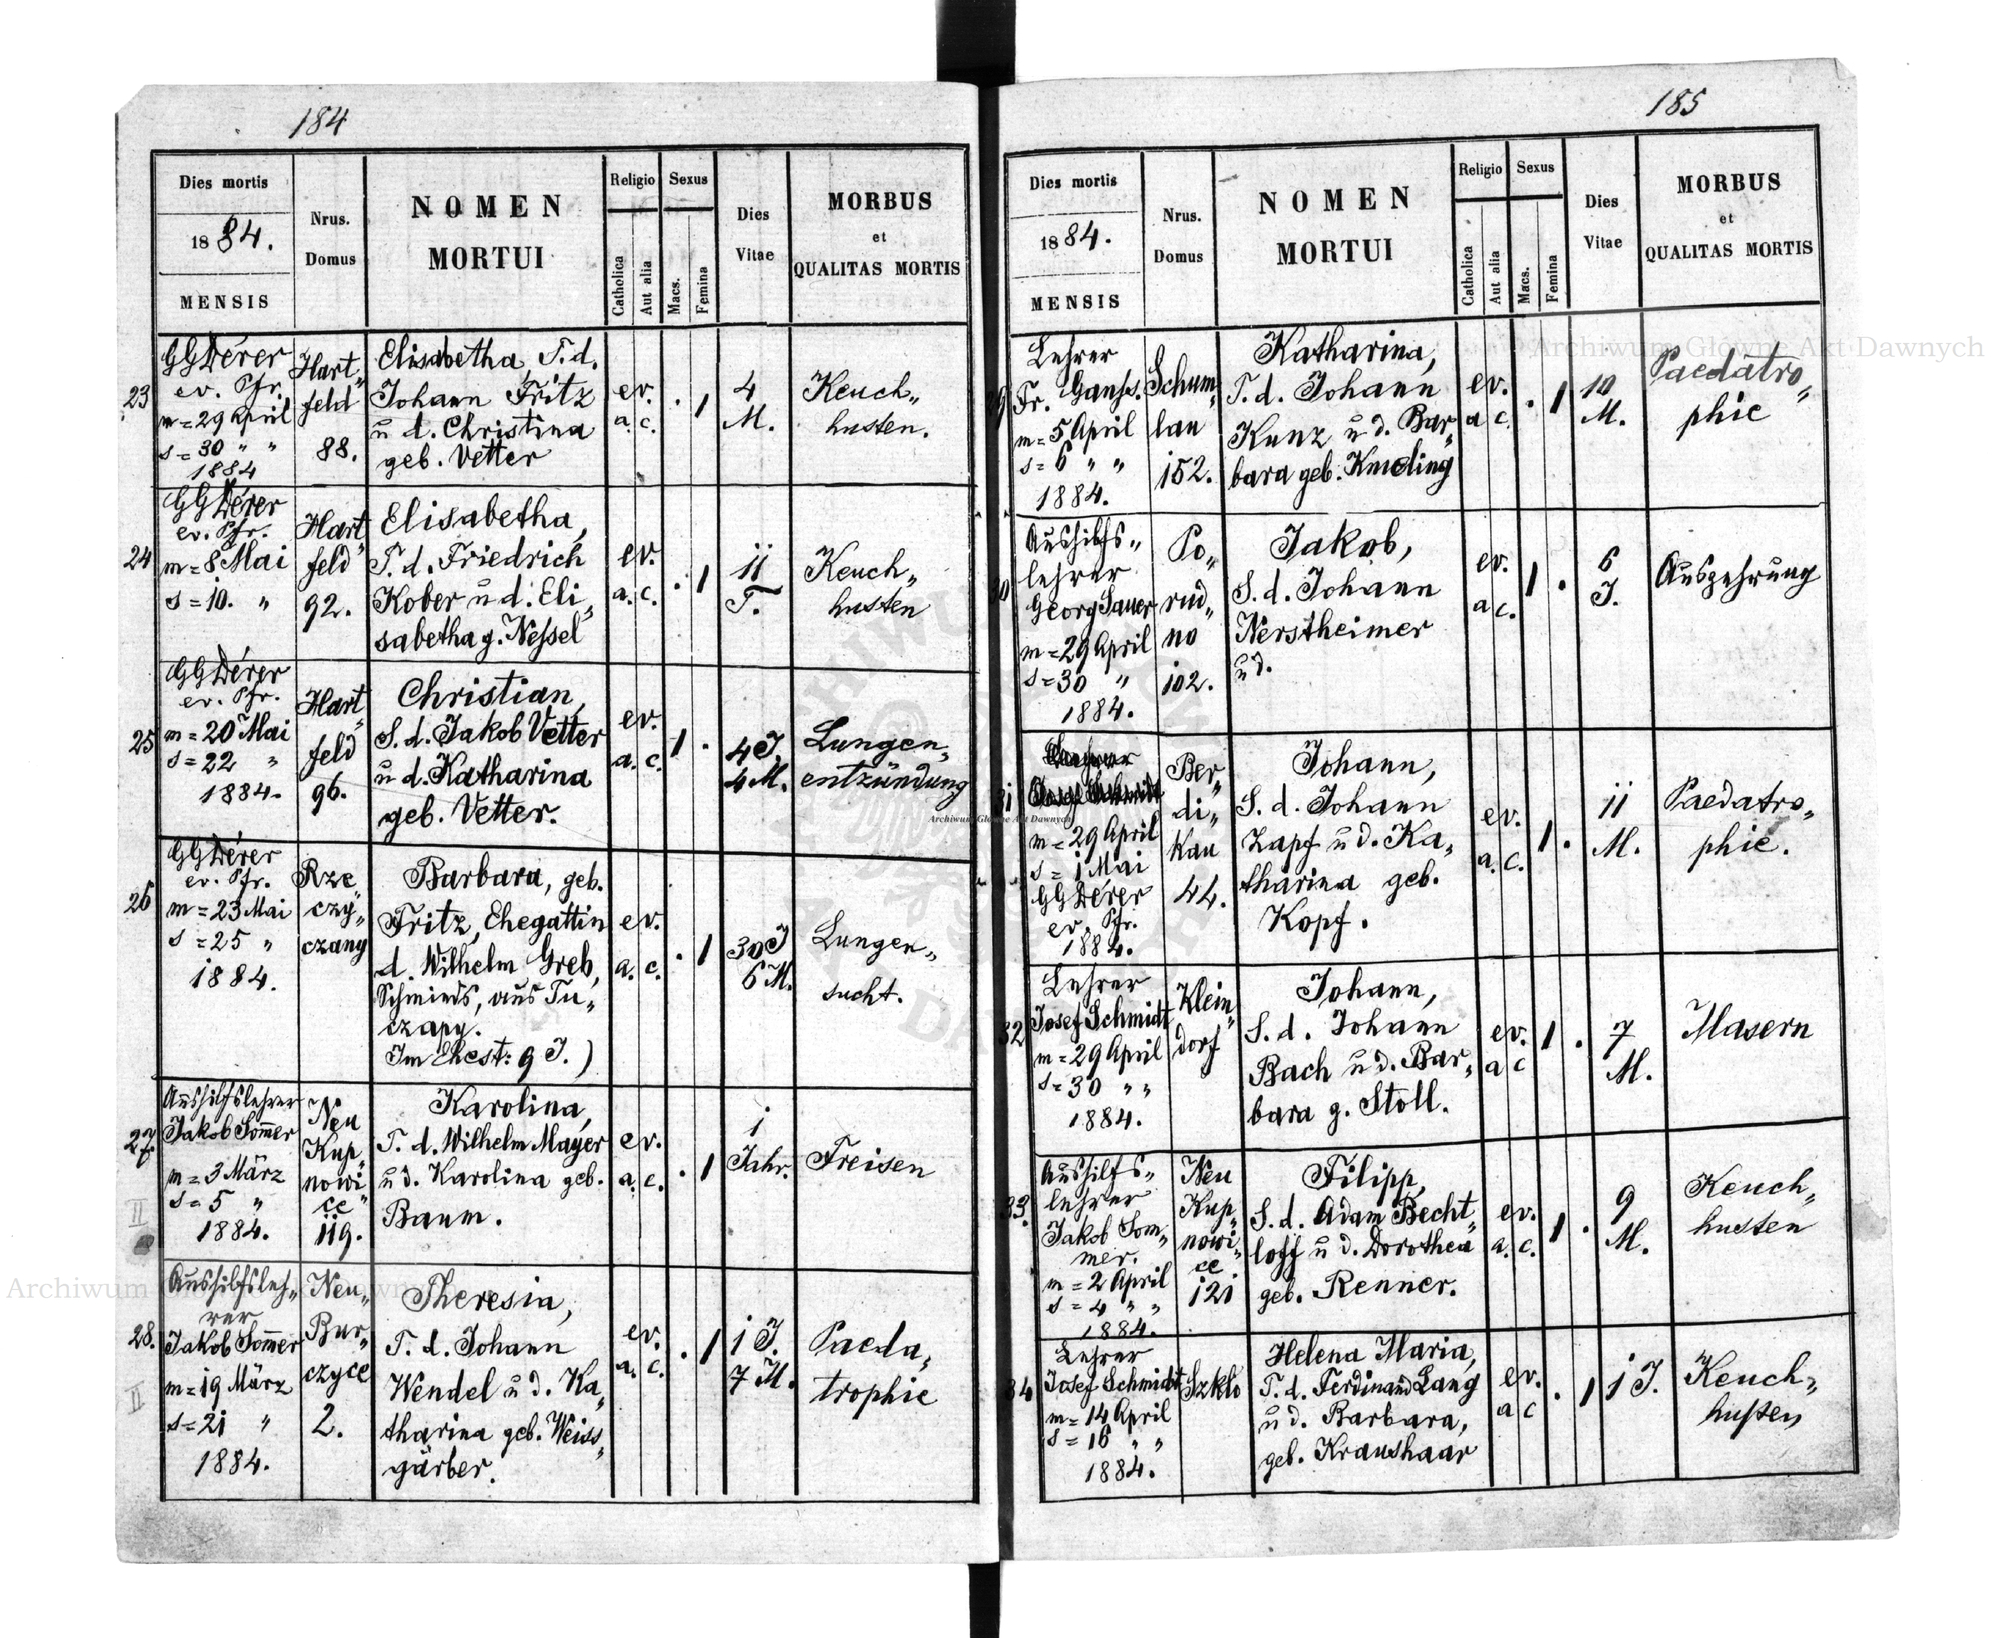 184
Dies mortis
1884.
MENSIS
Nrus.
Domus
NOMEN
MORTUI
Religio
Catholica
Aut alia
Sexus
Macs.
Femina
Dies
Vitae
MORBUS
et
QUALITAS MORTIS
23
GGDérer
ev. Pfr.
m = 29 April
s = 30 " "
1884
Hart„
feld
88.
Elisabetha, T. d.
Johann Fritz
u d. Christina
geb. Vetter
ev.
a. c.
. 1
4
M.
Keuch„
husten.
24
GGDérer
ev. Pfr.
m = 8 Mai
s = 10. "
Hart„
feld
92.
Elisabetha,
T. d. Friedrich
Kober u d. Eli„
sabetha g. Neſsel
ev.
a. c.
. 1
11
T.
Keuch„
husten
25
GGDérer
ev. Pfr.
m = 20 Mai
s = 22 "
1884.
Hart„
feld
96.
Christian,
S. d. Jakob Vetter
u d. Katharina
geb. Vetter.
ev.
a. c.
1 .
4 J.
4 M.
Lungen„
entzündung
26
GGDérer
ev. Pfr.
m = 23 Mai
s = 25 "
1884.
Rze„
czy„
czany
Barbara, geb.
Fritz, Ehegattin
d. Wilhelm Greb,
Schmieds, aus Tu„
czapy.
Im Ehest: 9 J. )
ev.
a. c.
. 1
30 J
6 M.
Lungen„
sucht.
27.
Aushilfslehrer
Jakob Som̄er
m = 3 März
s = 5 "
1884.
Neu
Kup„
nowi„
ce
119.
Karolina,
T. d. Wilhelm Mayer
u d. Karolina geb.
Baum.
ev.
a. c.
. 1
1
Jahr.
Freisen
28.
Aushilfsleh„
rer
Jakob Som̄er
m = 19 März
s = 21 "
1884.
Neu„
Bur„
czyce
2.
Theresia,
T. d. Johann
Wendel u d. Ka„
tharina geb. Weiss„
gärber.
ev.
a. c.
. 1
1 J.
7 M.
Paeda„
trophie
185
Dies mortis
1884.
MENSIS
Nrus.
Domus
NOMEN
MORTUI
Religio
Catholica
Aut alia
Sexus
Macs.
Femina
Dies
Vitae
MORBUS
et
QUALITAS MORTIS
Lehrer
Fr.
m = 5 April
s = 6 " "
1884.
Schum„
lau
152.
Katharina,
T. d. Johann
Kunz u d. Bar„
bara geb.
ev.
a c.
. 1
10
M.
Paedatro„
phie
Aushilfs„
lehrer
Georg Sauer
m = 29 April
s = 30 "
1884.
Po„
rud„
no
102.
Jakob,
S. d. Johann
Nerstheimer
u d.
ev.
a c.
1 .
6
J.
Auszehrung
31
m = 29 April
s = 1 Mai
GGDérer
ev. Pfr.
1884.
Ber„
di„
kau
44.
Johann,
S. d. Johann
Zapf u d. Ka„
tharina geb.
Kopf.
ev.
a. c.
1 .
11
M.
Paedatro„
phie.
32
Lehrer
Josef Schmidt
m = 29 April
s = 30 " "
1884.
Klein„
dorf
Johann,
S. d. Johann
Bach u d. Bar„
bara g. Stoll.
ev.
a c
1 .
7
M.
Masern
33.
Aushilfs„
lehrer
Jakob Som„
mer.
m = 2 April
s = 4 " "
1884.
Neu
Kup„
nowi„
ce
121
Filipp,
S. d. Adam Becht„
loff u d. Dorothea
geb. Renner.
ev.
a. c.
1 .
9
M.
Keuch„
husten
34
Lehrer
Josef Schmidt
m = 14 April
s = 16 " "
1884.
Szkło
Helena Maria,
T. d. Ferdinand Lang
u d. Barbara,
geb. Kraushaar
ev.
a c
. 1
1 J.
Keuch„
husten
Archiwum Główne Akt Dawnych
Archiwum Główne Akt Dawnych